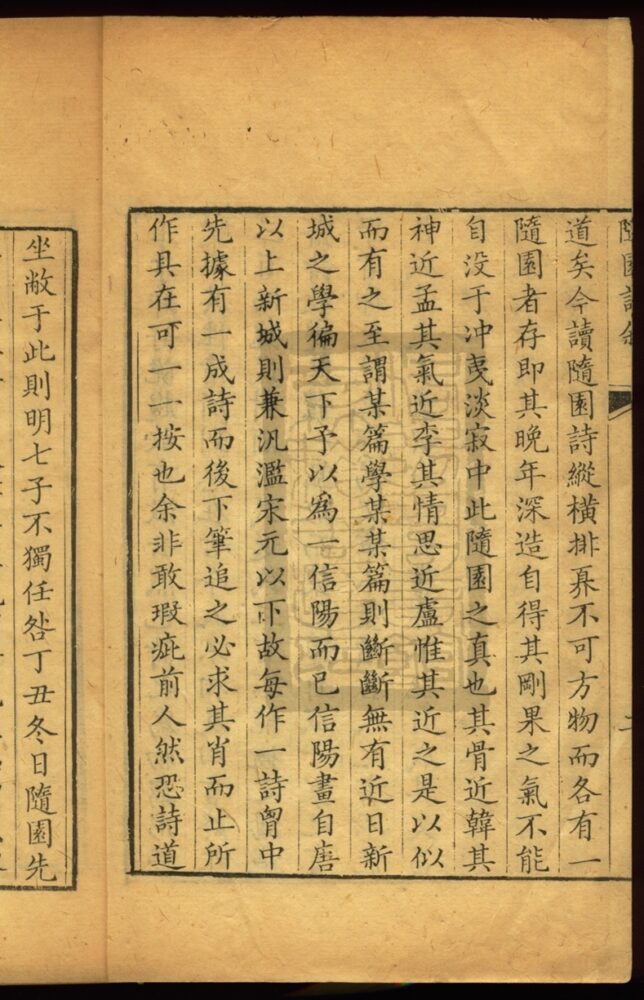 隨園詩敘
二
道矣今讀隨園詩縱橫排奡不可方物而各有一
隨園者存即其晚年深造自得其剛果之氣不能
自没于冲夷淡寂中此隨園之真也其骨近韓其
神近孟其氣近李其情思近盧惟其近之是以似
而有之至謂某篇學某某篇則斷斷無有近日新
城之學徧天下予以為一信陽而已信陽畫自唐
以上新城則兼汎濫宋元以下故每作一詩胷中
先據有一成詩而後下筆追之必求其肖而止所
作具在可一一按也余非敢瑕疵前人然恐詩道
坐敝于此則明七子不獨任咎丁丑冬日隨園先